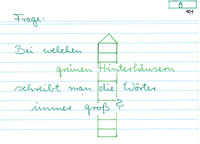 A
101
Frage:
Bei welchen
grünen Hinterhäusern
schreibt man die Wörter
immer groß?